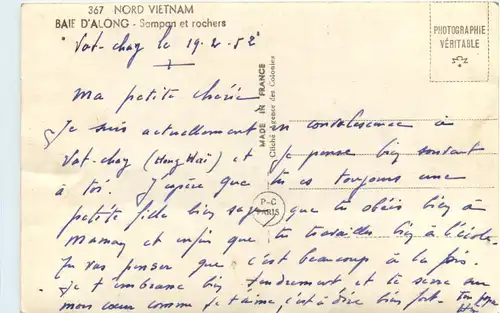 367 NORD VIETNAM
BAIE D'ALONG - Sampan et rochers
PHOTOGRAPHIE
VÉRITABLE
Vat-chay le 19-2-52
Ma petite chérie
Je suis actuellement en convalescence à
Vat-chay (Hong Hai) et je pense bien souvent
à toi. J'espère que tu es toujours une
petite fille bien sage, que tu obéis bien à
Maman et enfin que tu travailles bien à l'école.
Tu vas penser que c'est beaucoup à la fois.
Je t'embrasse bien tendrement et te serre sur
mon cœur comme je t'aime, c'est à dire bien fort. Ton papa
MADE IN FRANCE
Cliché Agence des Colonies
P-C
PARIS